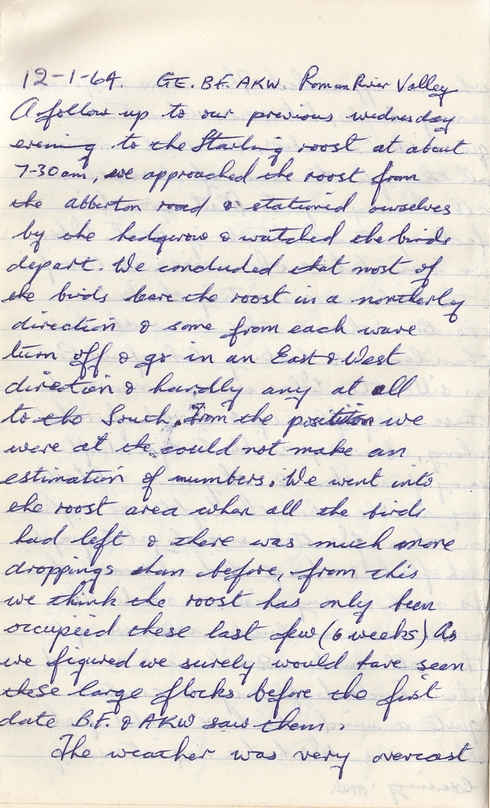 12-1-64. GE. BF. AKW. Roman River Valley
A follow up to our previous wednesday
evening to the Starling roost at about
7-30am, we approached the roost from
the abberton road & stationed ourselves
by the hedgerow & watched the birds
depart. We concluded that most of
the birds leave the roost in a northerly
direction & some from each wave
turn off & go in an East & West
direction & hardly any at all
to the South. From the position we
were at the could not make an
estimation of numbers. We went into
the roost area when all the birds
had left & there was much more
droppings than before, from this
we think the roost has only been
occupeid these last few (6 weeks) As
we figured we surely would have seen
these large flocks before the first
date B.F. & AKW saw them.
The weather was very overcast